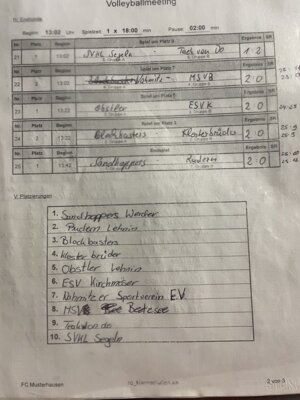 Volleyballmeeting
IV. Endrunde
Beginn: 13:02 Uhr Spielzeit: 1 x 18:00 min Pause: 02:00 min
Nr. Platz Beginn Spiel um Platz 9 Ergebnis SR
21 1 13:02 SVKL Segeln - 1:2
Nr. Platz Beginn Spiel um Platz 7 Ergebnis SR
22 2 13:02 - MSVB 2:0
Nr. Platz Beginn Spiel um Platz 5 Ergebnis SR
23 1 Obstler - ESV K 2:0
Nr. Platz Beginn Spiel um Platz 3 Ergebnis SR
24 2 13:22 Blockbasters - Klosterbrüder 2:0
Nr. Platz Beginn Endspiel Ergebnis SR
25 1 13:42 Sandhoppers - Rudern 2:0
V. Platzierungen
1. Sandhoppers Werder
2. Rudern Lehnin
3. Blockbasters
4. Klosterbrüder
5. Obstler Lehnin
6. ESV Kirchmöser
7. Nahmitzer Sportverein E.V.
8. MSV Beetzsee
9.
10. SVKL Segeln
FC Musterhausen
2 von 3